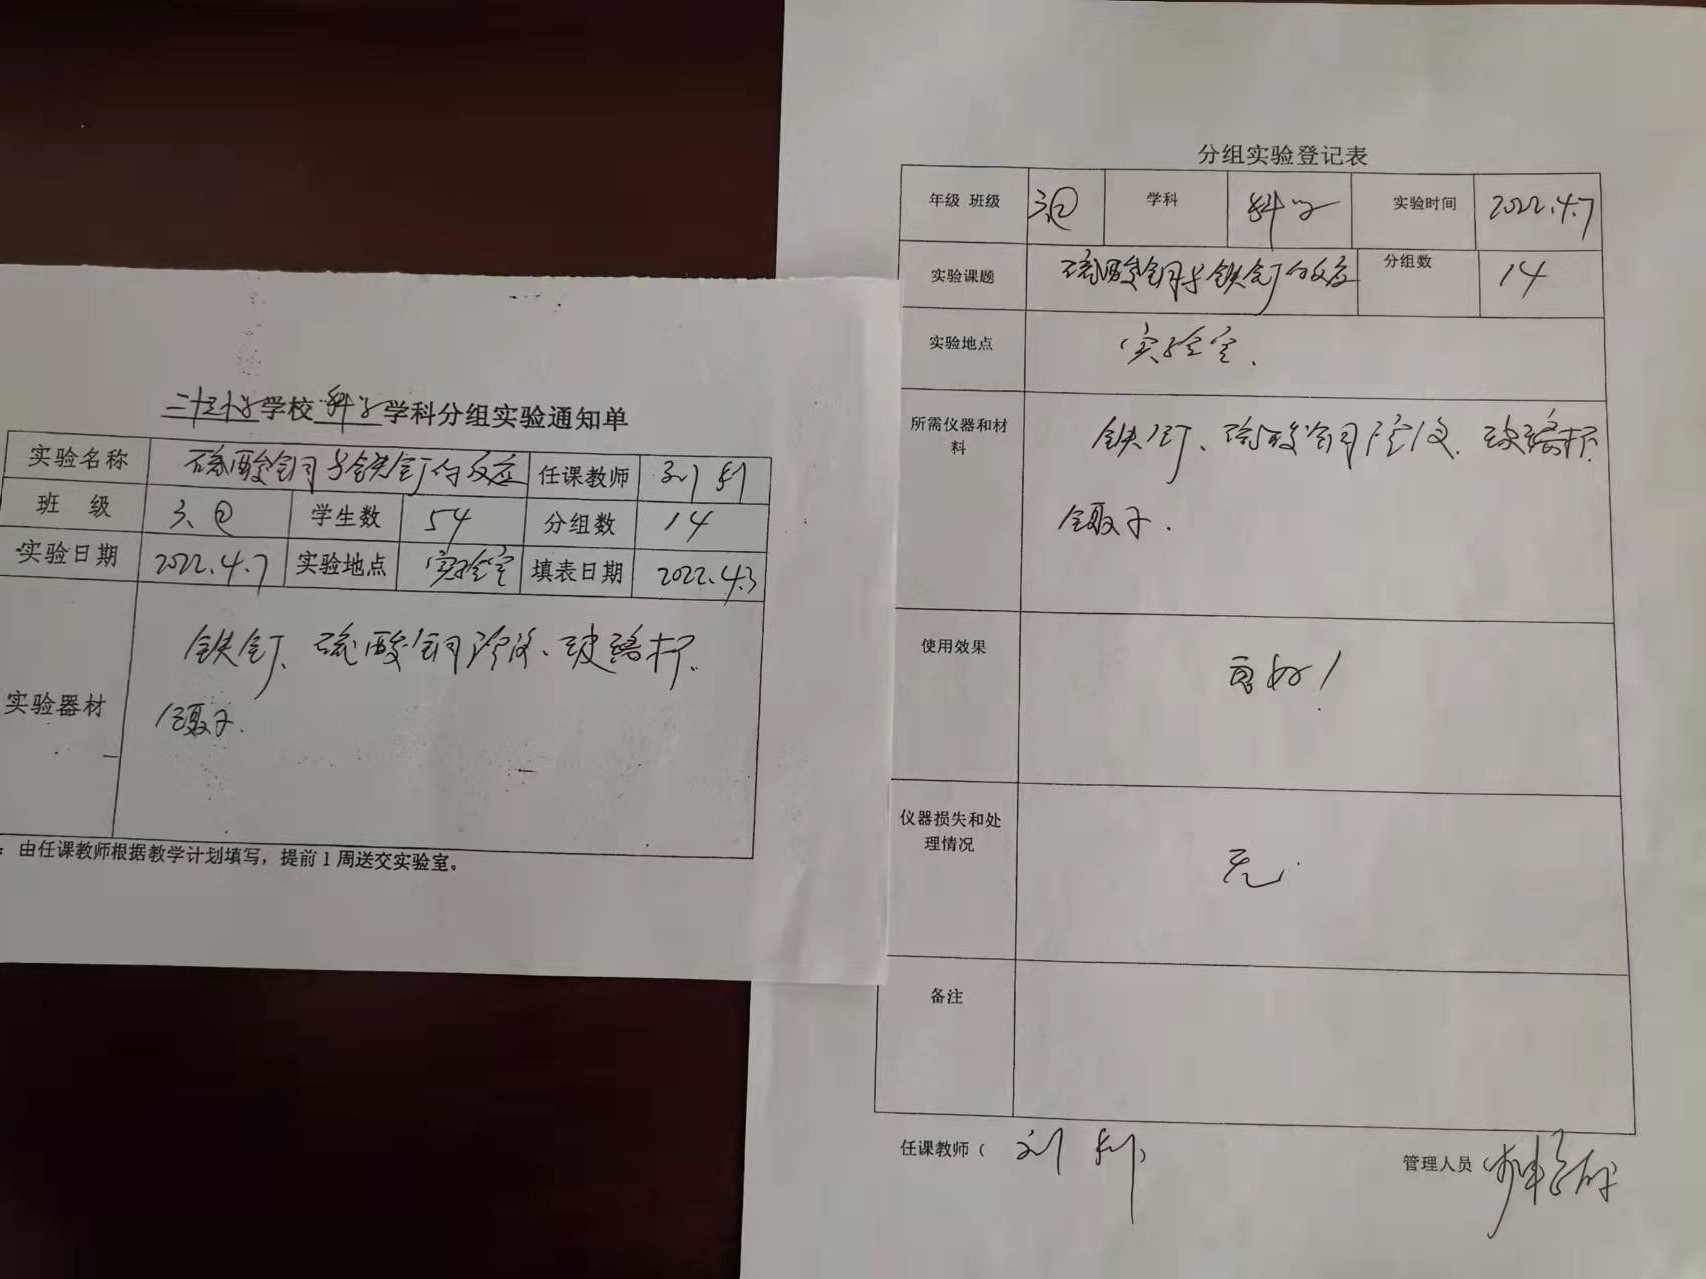 学校 科学 学科分组实验通知单
实验名称 硫酸铜与铁钉的反应 任课教师 刘
班 级 六④ 学生数 54 分组数 14
实验日期 2022.4.7 实验地点 实验室 填表日期 2022.4.3
实验器材 铁钉、硫酸铜溶液、玻璃杯、
镊子.
：由任课教师根据教学计划填写，提前1周送交实验室。
分组实验登记表
年级 班级 六④ 学科 科学 实验时间 2022.4.7
实验课题 硫酸铜与铁钉的反应 分组数 14
实验地点 实验室.
所需仪器和材料 铁钉、硫酸铜溶液、玻璃杯
镊子.
使用效果 良好！
仪器损失和处理情况 无.
备注
任课教师（ 刘 管理人员（